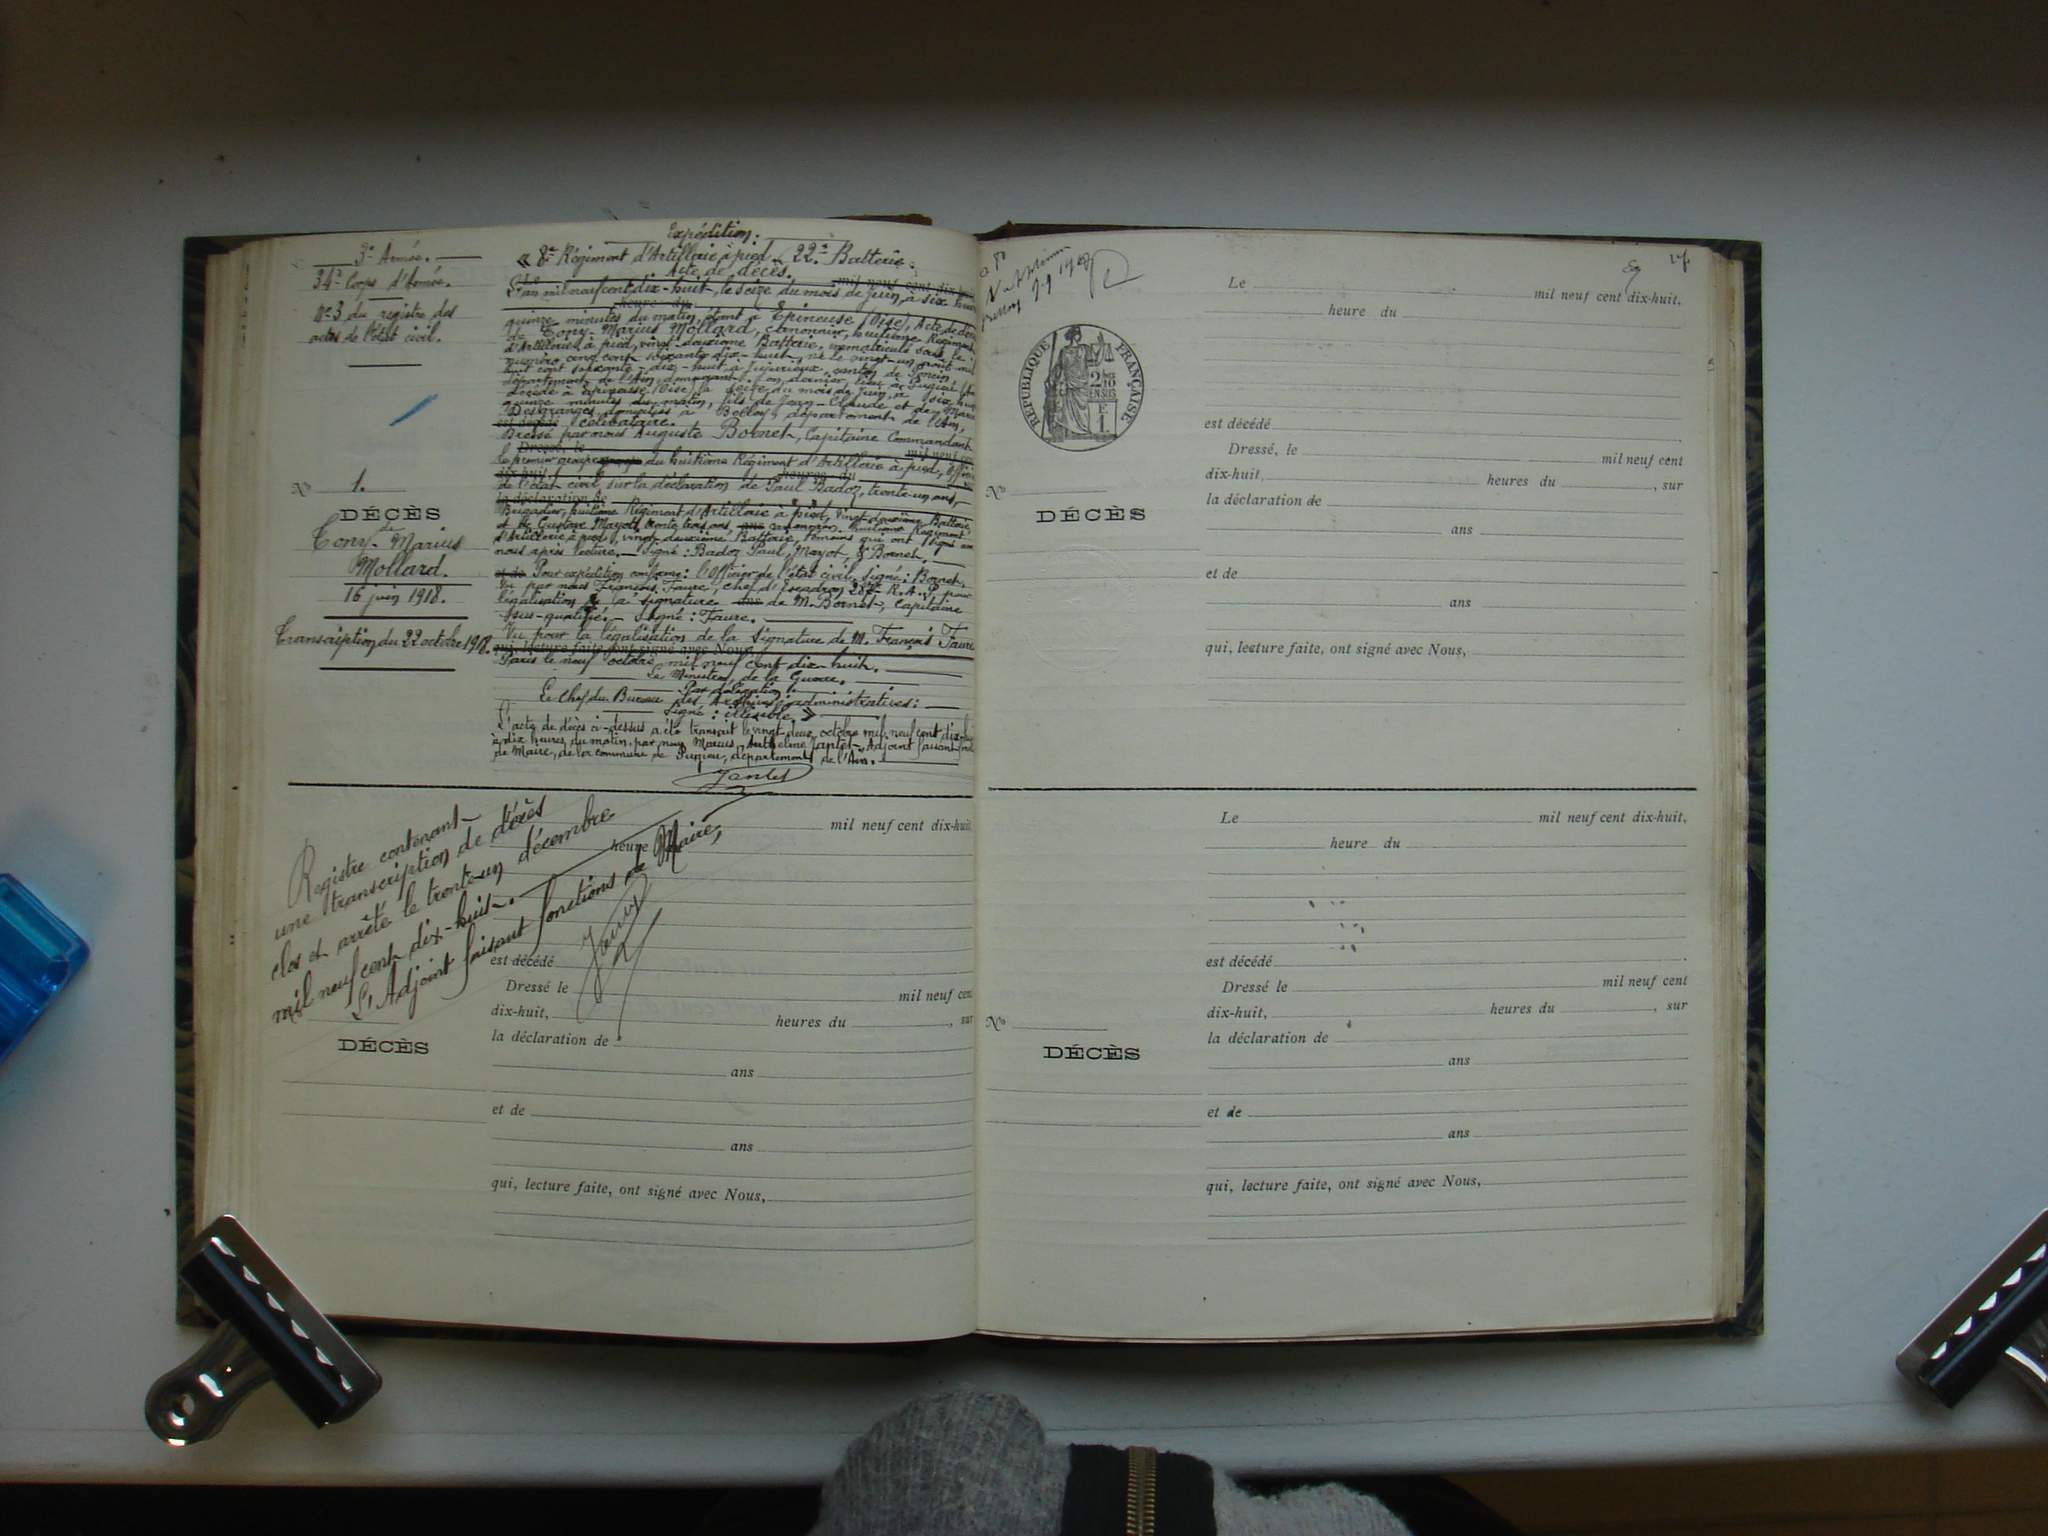 3e Armée.
34e Corps d'Armée.
No 3 du registre des
actes de l'état civil.
No 1.
DÉCÈS
de
Tony-Marius
Mollard.
16 juin 1918.
Transcription du 22 octobre 1918.
Expédition:
« 8e Régiment d'Artillerie à pied. 22e Batterie.
Acte de décès.
Le mil neuf cent dix-huit
L'an mil neuf cent dix-huit, le seize du mois de Juin, à six heures
heure du
quinze minutes du matin, étant à Epineuse (Oise), Acte de décès
de Tony-Marius Mollard, canonnier, huitième Régiment
d'Artillerie à pied, vingt-deuxième Batterie, immatriculé sous le
numéro cinq cent soixante dix-huit, né le vingt-un août mil
huit cent soixante-dix-huit à Jujurieux, canton de Poncin
département de l'Ain, domicilié en dernier lieu à Pugieu (Ain)
décédé à Epineuse (Oise) le seize du mois de Juin, à six heures
quinze minutes du matin, fils de Jean-Claude et de Marie
Desgranges, domiciliés à Belley, département de l'Ain,
est décédé célibataire.
Dressé par nous Auguste Bornet, Capitaine Commandant
Dressé, le mil neuf cent
le premier groupe du huitième Régiment d'Artillerie à pied, Officier
dix-huit, heures du
de l'état civil, sur la déclaration de Paul Badoz, trente-un ans,
la déclaration de
Brigadier, huitième Régiment d'Artillerie à pied, vingt-deuxième Batterie,
et de Gustave Mayot, trente trois ans, ans canonnier huitième Régiment
d'Artillerie à pied, vingt-deuxième Batterie, témoins qui ont signé avec
nous après lecture. — Signé: Badoz Paul, Mayot, & Bornet.
et de Pour expédition conforme: l'Officier de l'état civil, Signé: Bornet.
Vu par nous François Faure, Chef d'Escadron, R.A.P. pour
légalisation de la signature ans de M. Bornet, Capitaine
sus-qualifié. — Signé: Faure.
Vu pour la légalisation de la signature de M. François Faure
qui, lecture faite, ont signé avec Nous,
Paris le neuf octobre mil neuf cent dix-huit.
Le Ministre de la Guerre.
Par délégation le
Le Chef du Bureau des Archives administratives:
Signé: illisible »
L'acte de décès ci-dessus a été transcrit le vingt-deux octobre mil neuf cent dix-huit
à dix heures du matin, par nous Marius Anthelme Jantet, Adjoint faisant fonctions
de Maire, de la commune de Pugieu, département de l'Ain.
Jantet
Registre contenant
une transcription de décès
clos et arrêté le trente-un décembre
mil neuf cent dix-huit.
L'Adjoint faisant fonctions de Maire,
mil neuf cent dix-huit,
heure
est décédé
Dressé le mil neuf cent
dix-huit, heures du , sur
la déclaration de
ans
et de
ans
qui, lecture faite, ont signé avec Nous,
DÉCÈS
RÉPUBLIQUE FRANÇAISE
Le mil neuf cent dix-huit,
heure du
est décédé
Dressé, le mil neuf cent
dix-huit, heures du , sur
la déclaration de
No
DÉCÈS
ans
et de
ans
qui, lecture faite, ont signé avec Nous,
Le mil neuf cent dix-huit,
heure du
est décédé
Dressé le mil neuf cent
dix-huit, heures du , sur
No
la déclaration de
DÉCÈS
ans
et de
ans
qui, lecture faite, ont signé avec Nous,